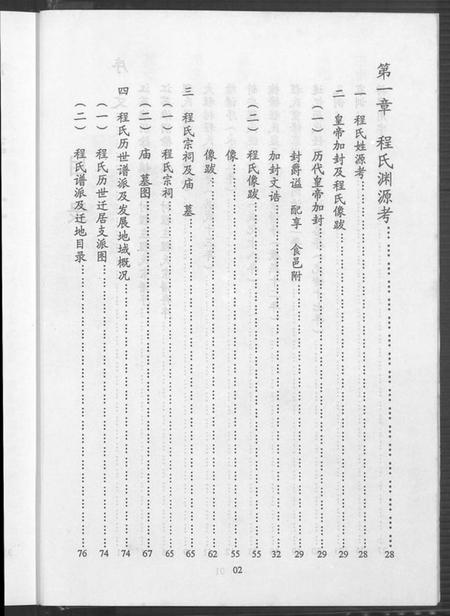 第一章 程氏渊源考……28
一 程氏姓源考……28
二 皇帝加封及程氏像跋……29
(一) 历代皇帝加封……29
封爵谥 配享 食邑附……29
加封文诰……32
(二) 程氏像跋……55
像……55
像跋……62
三 程氏宗祠及庙 墓……65
(一) 程氏宗祠……65
(二) 庙 墓图……67
四 程氏历世谱派及发展地域概况……74
(一) 程氏历世迁居支派图……74
(二) 程氏谱派及迁地目录……76
02